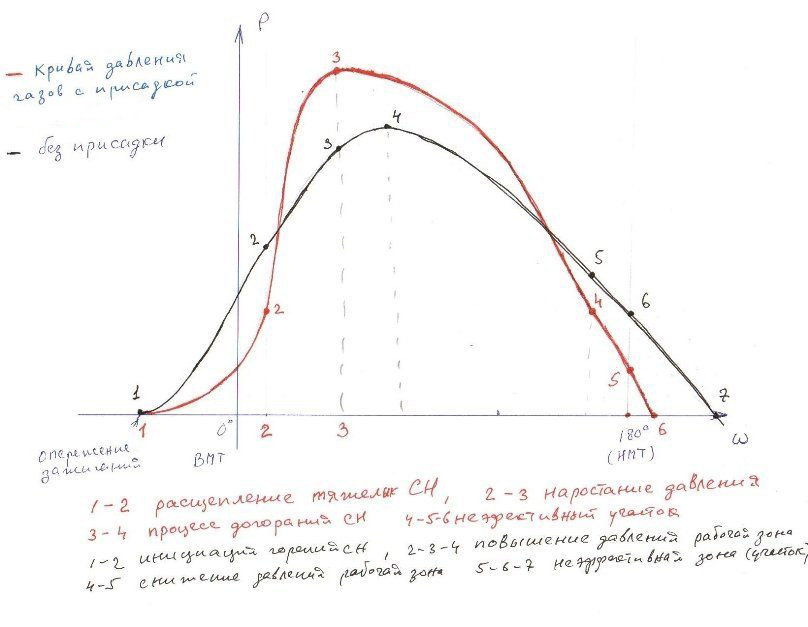 P
— Кривай давления
газов с присадкой
— без присадки
3
4
3
2
2
5
4
6
5
1
7
1
0°
2
3
180°
6
ω
опережение
зажигания
ВМТ
(НМТ)
1-2 расщепление тяжелых СН, 2-3 наростание давления
3-4 процесс догорания СН 4-5-6 неэффективный участок
1-2 инициация горения СН, 2-3-4 повышение давления рабочая зона
4-5 снижение давления рабочая зона 5-6-7 неэффективная зона (участок)